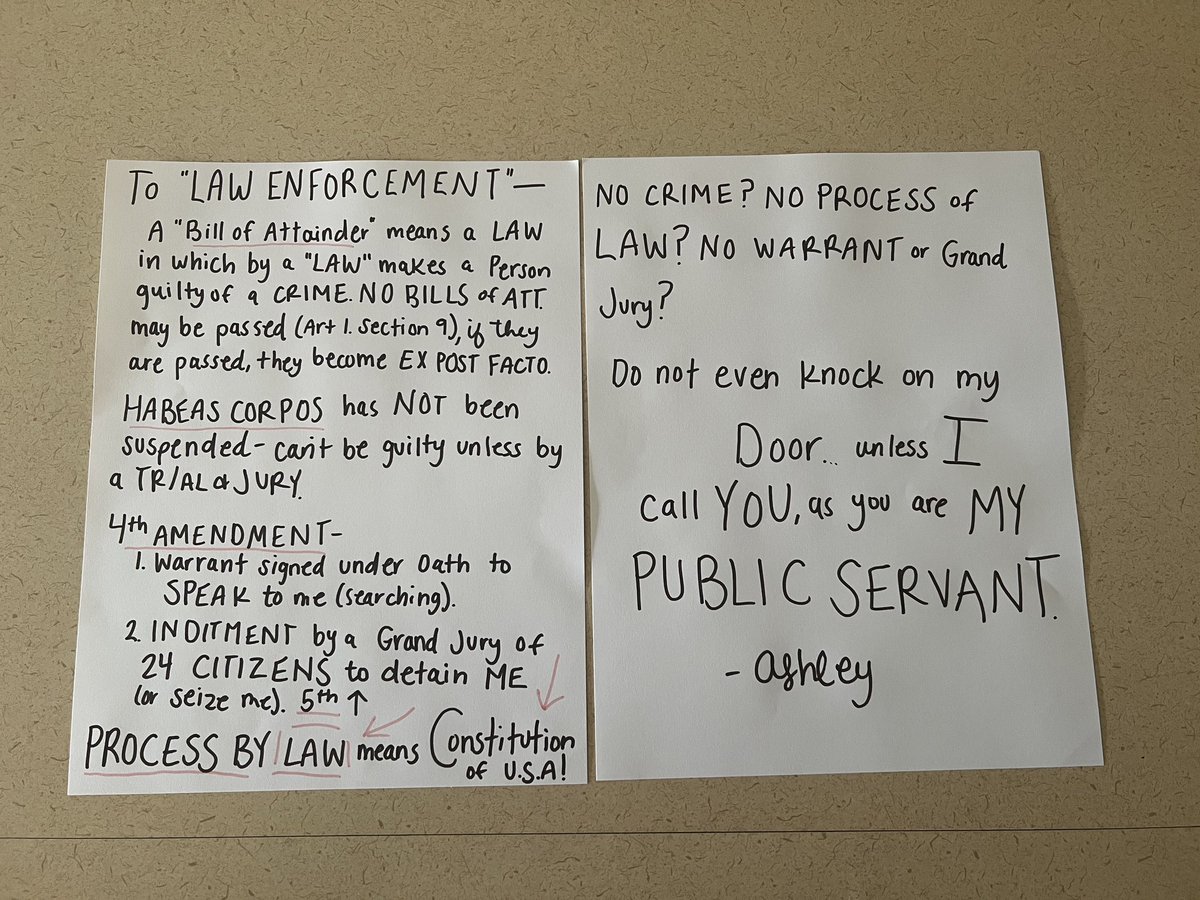 To "LAW ENFORCEMENT"—
A "Bill of Attainder" means a LAW
in which by a "LAW" makes a Person
guilty of a CRIME. NO BILLS of ATT.
may be passed (Art 1. Section 9), if they
are passed, they become EX POST FACTO.
HABEAS CORPOS has NOT been
suspended- can't be guilty unless by
a TRIAL of JURY.
4th AMENDMENT-
1. Warrant signed under Oath to
SPEAK to me (searching).
2. INDITMENT by a Grand Jury of
24 CITIZENS to detain ME
(or seize me). 5th ↑
PROCESS BY |LAW| means Constitution
of U.S.A!
NO CRIME? NO PROCESS of
LAW? NO WARRANT or Grand
Jury?
Do not even knock on my
Door... unless I
call YOU, as you are MY
PUBLIC SERVANT.
- ashley